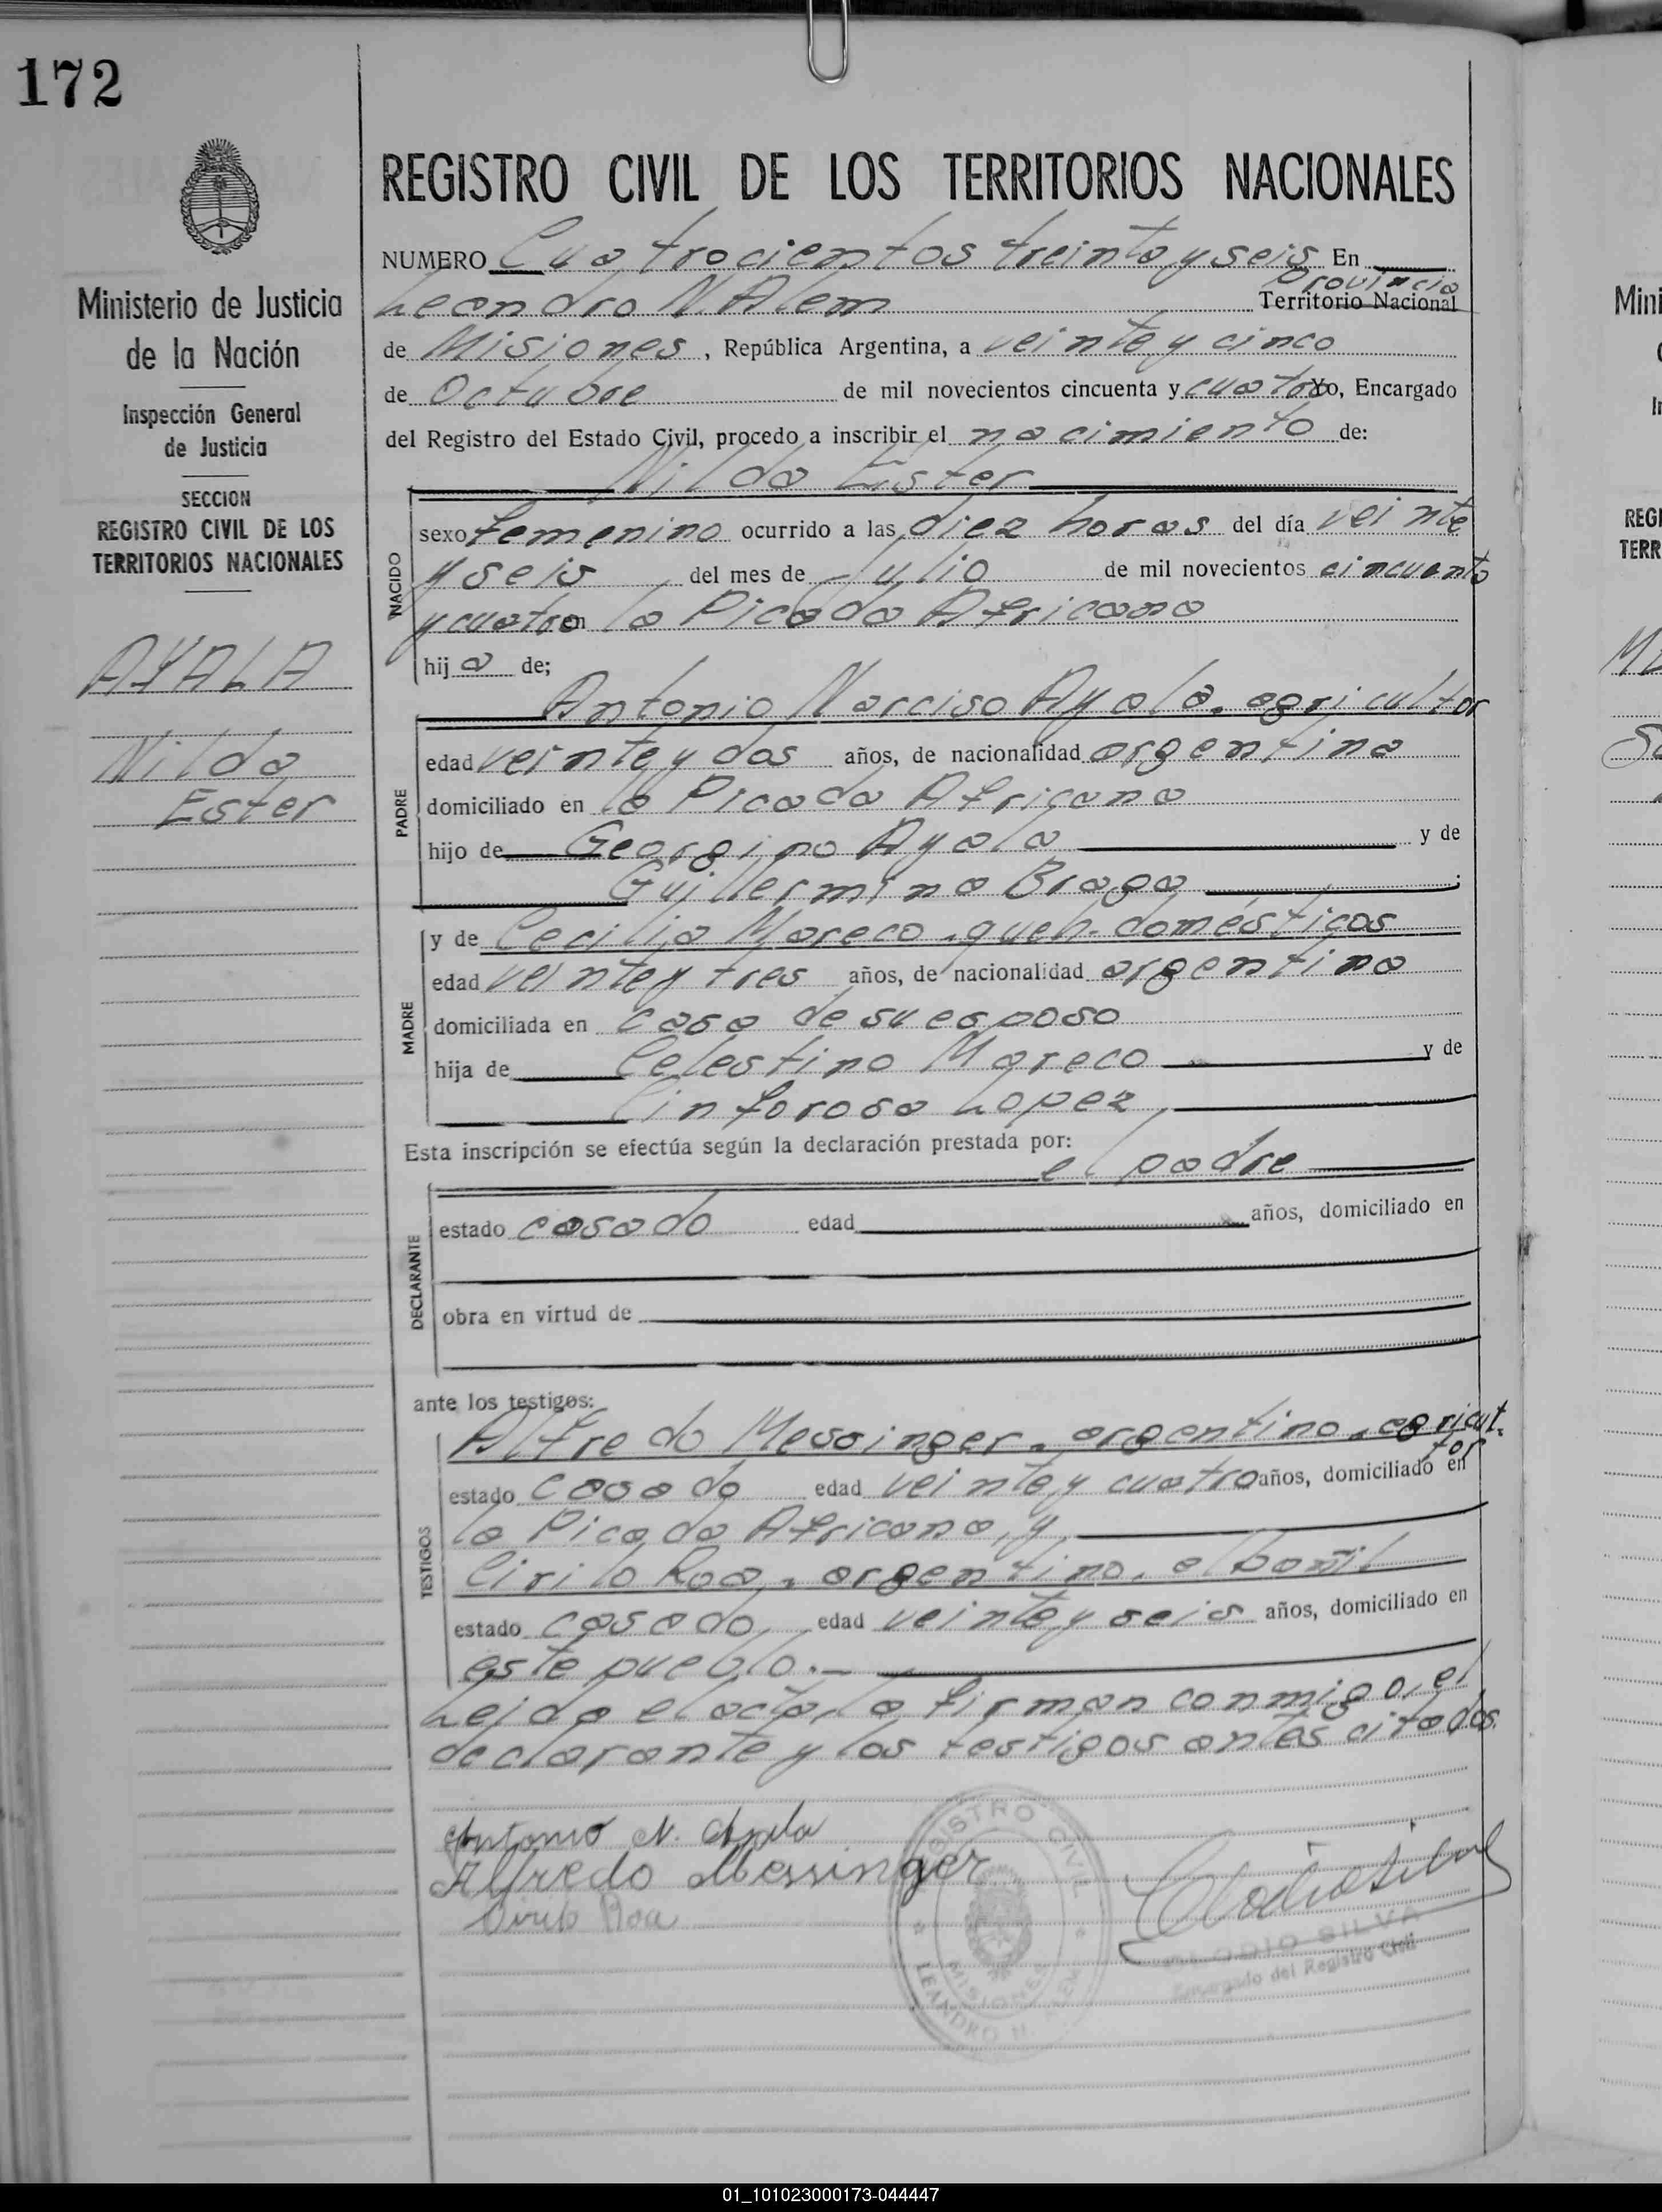 172
REGISTRO CIVIL DE LOS TERRITORIOS NACIONALES
Ministerio de Justicia
de la Nación
Inspección General
de Justicia
SECCION
REGISTRO CIVIL DE LOS
TERRITORIOS NACIONALES
AYALA
Nilda
Ester
NUMERO Cuatrocientos treinta y seis En
provincia
Leandro N. Alem Territorio Nacional
de Misiones, República Argentina, a veinte y cinco
de Octubre de mil novecientos cincuenta y cuatro Yo, Encargado
del Registro del Estado Civil, procedo a inscribir el nacimiento de:
Nilda Ester
NACIDO
sexo femenino ocurrido a las diez horas del día veinte
y seis del mes de Julio de mil novecientos cincuenta
y cuatro en la Picada Africana
hija de;
Antonio Narciso Ayala. agricultor
PADRE
edad veinte y dos años, de nacionalidad argentina
domiciliado en la Picada Africana
hijo de Georgino Ayala y de
Guillermina Braga ;
MADRE
y de Cecilia Mareco. queh. domésticos
edad veinte y tres años, de nacionalidad argentina
domiciliada en casa de su esposo
hija de Celestino Mareco y de
Cinforosa Lopez,
Esta inscripción se efectúa según la declaración prestada por:
el padre
DECLARANTE
estado casado edad años, domiciliado en
obra en virtud de
ante los testigos:
TESTIGOS
Alfredo Messinger. argentino. agricultor
estado casado edad veinte y cuatro años, domiciliado en
la Picada Africana, y
Cirilo Roa. argentino. albañil
estado casado, edad veinte y seis años, domiciliado en
este pueblo.-
Leida el acta, la firman conmigo, el
declarante y los testigos antes citados.
Antonio N. Ayala
Alfredo Messinger
Cirilo Roa
REGISTRO CIVIL
MISIONES
LEANDRO N. ALEM
Clodio Silva
CLODIO SILVA
Encargado del Registro Civil
Mini
REGI
TERR
01_101023000173-044447